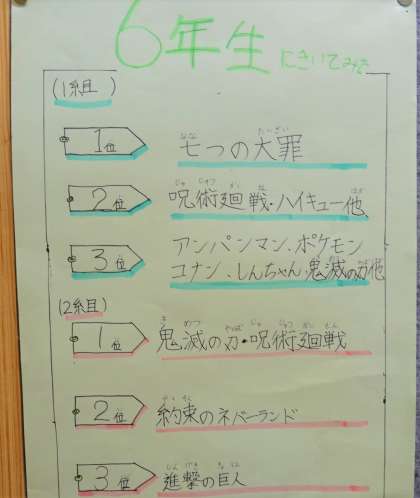 6年生にきいてみた
(1組)
1位 七つの大罪
2位 呪術廻戦・ハイキュー他
3位 アンパンマン、ポケモン
コナン、しんちゃん、鬼滅の刃他
(2組)
1位 鬼滅の刃・呪術廻戦
2位 約束のネバーランド
3位 進撃の巨人